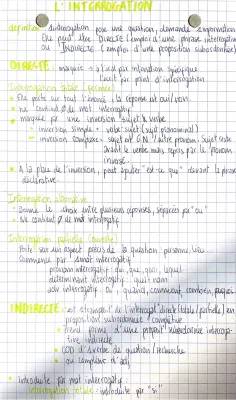 L'INTERROGATION
définition: l'interrogation pose une question, demande information
Elle peut être DIRECTE (emploi d'une phrase interrogative)
ou INDIRECTE (emploi d'une proposition subordonnée)
DIRECTE marques → à l'oral par intonation spécifique
l'écrit par point d'interrogation
Interrogation totale (fermée)
Elle porte sur tout l'énoncé : la réponse est oui/non
ne contient Ø de mot interrogatif
marqué par une inversion sujet & verbe
inversion simple = verbe sujet (sujet pronominal)
inversion complexe = sujet est GN / autre pronom. Sujet reste
avant le verbe mais repris par le pronom
inversé
A la place de l'inversion, peut ajouter "est-ce que" devant la phrase
déclarative
Interrogation alternative
Donne le choix entre plusieurs réponses, séparées par "ou"
ne contient Ø de mot interrogatif
Interrogation partielle (ouverte)
Porte sur un aspect précis de la question : personne, lieu
Commence par 1 mot interrogatif
pronom interrogatif : qui, que, quoi, lequel
déterminant interrogatif : quel
adv interrogatif : où, quand, comment, combien, pourquoi
INDIRECTE = est
proposition subordonnée
prend forme d'une propos° subordonnée interroga-
tive indirecte
COD d'1 verbe de question / recherche
ou complément d'adj
introduite par mot interrogatif
interrogation totale : introduite par "si"